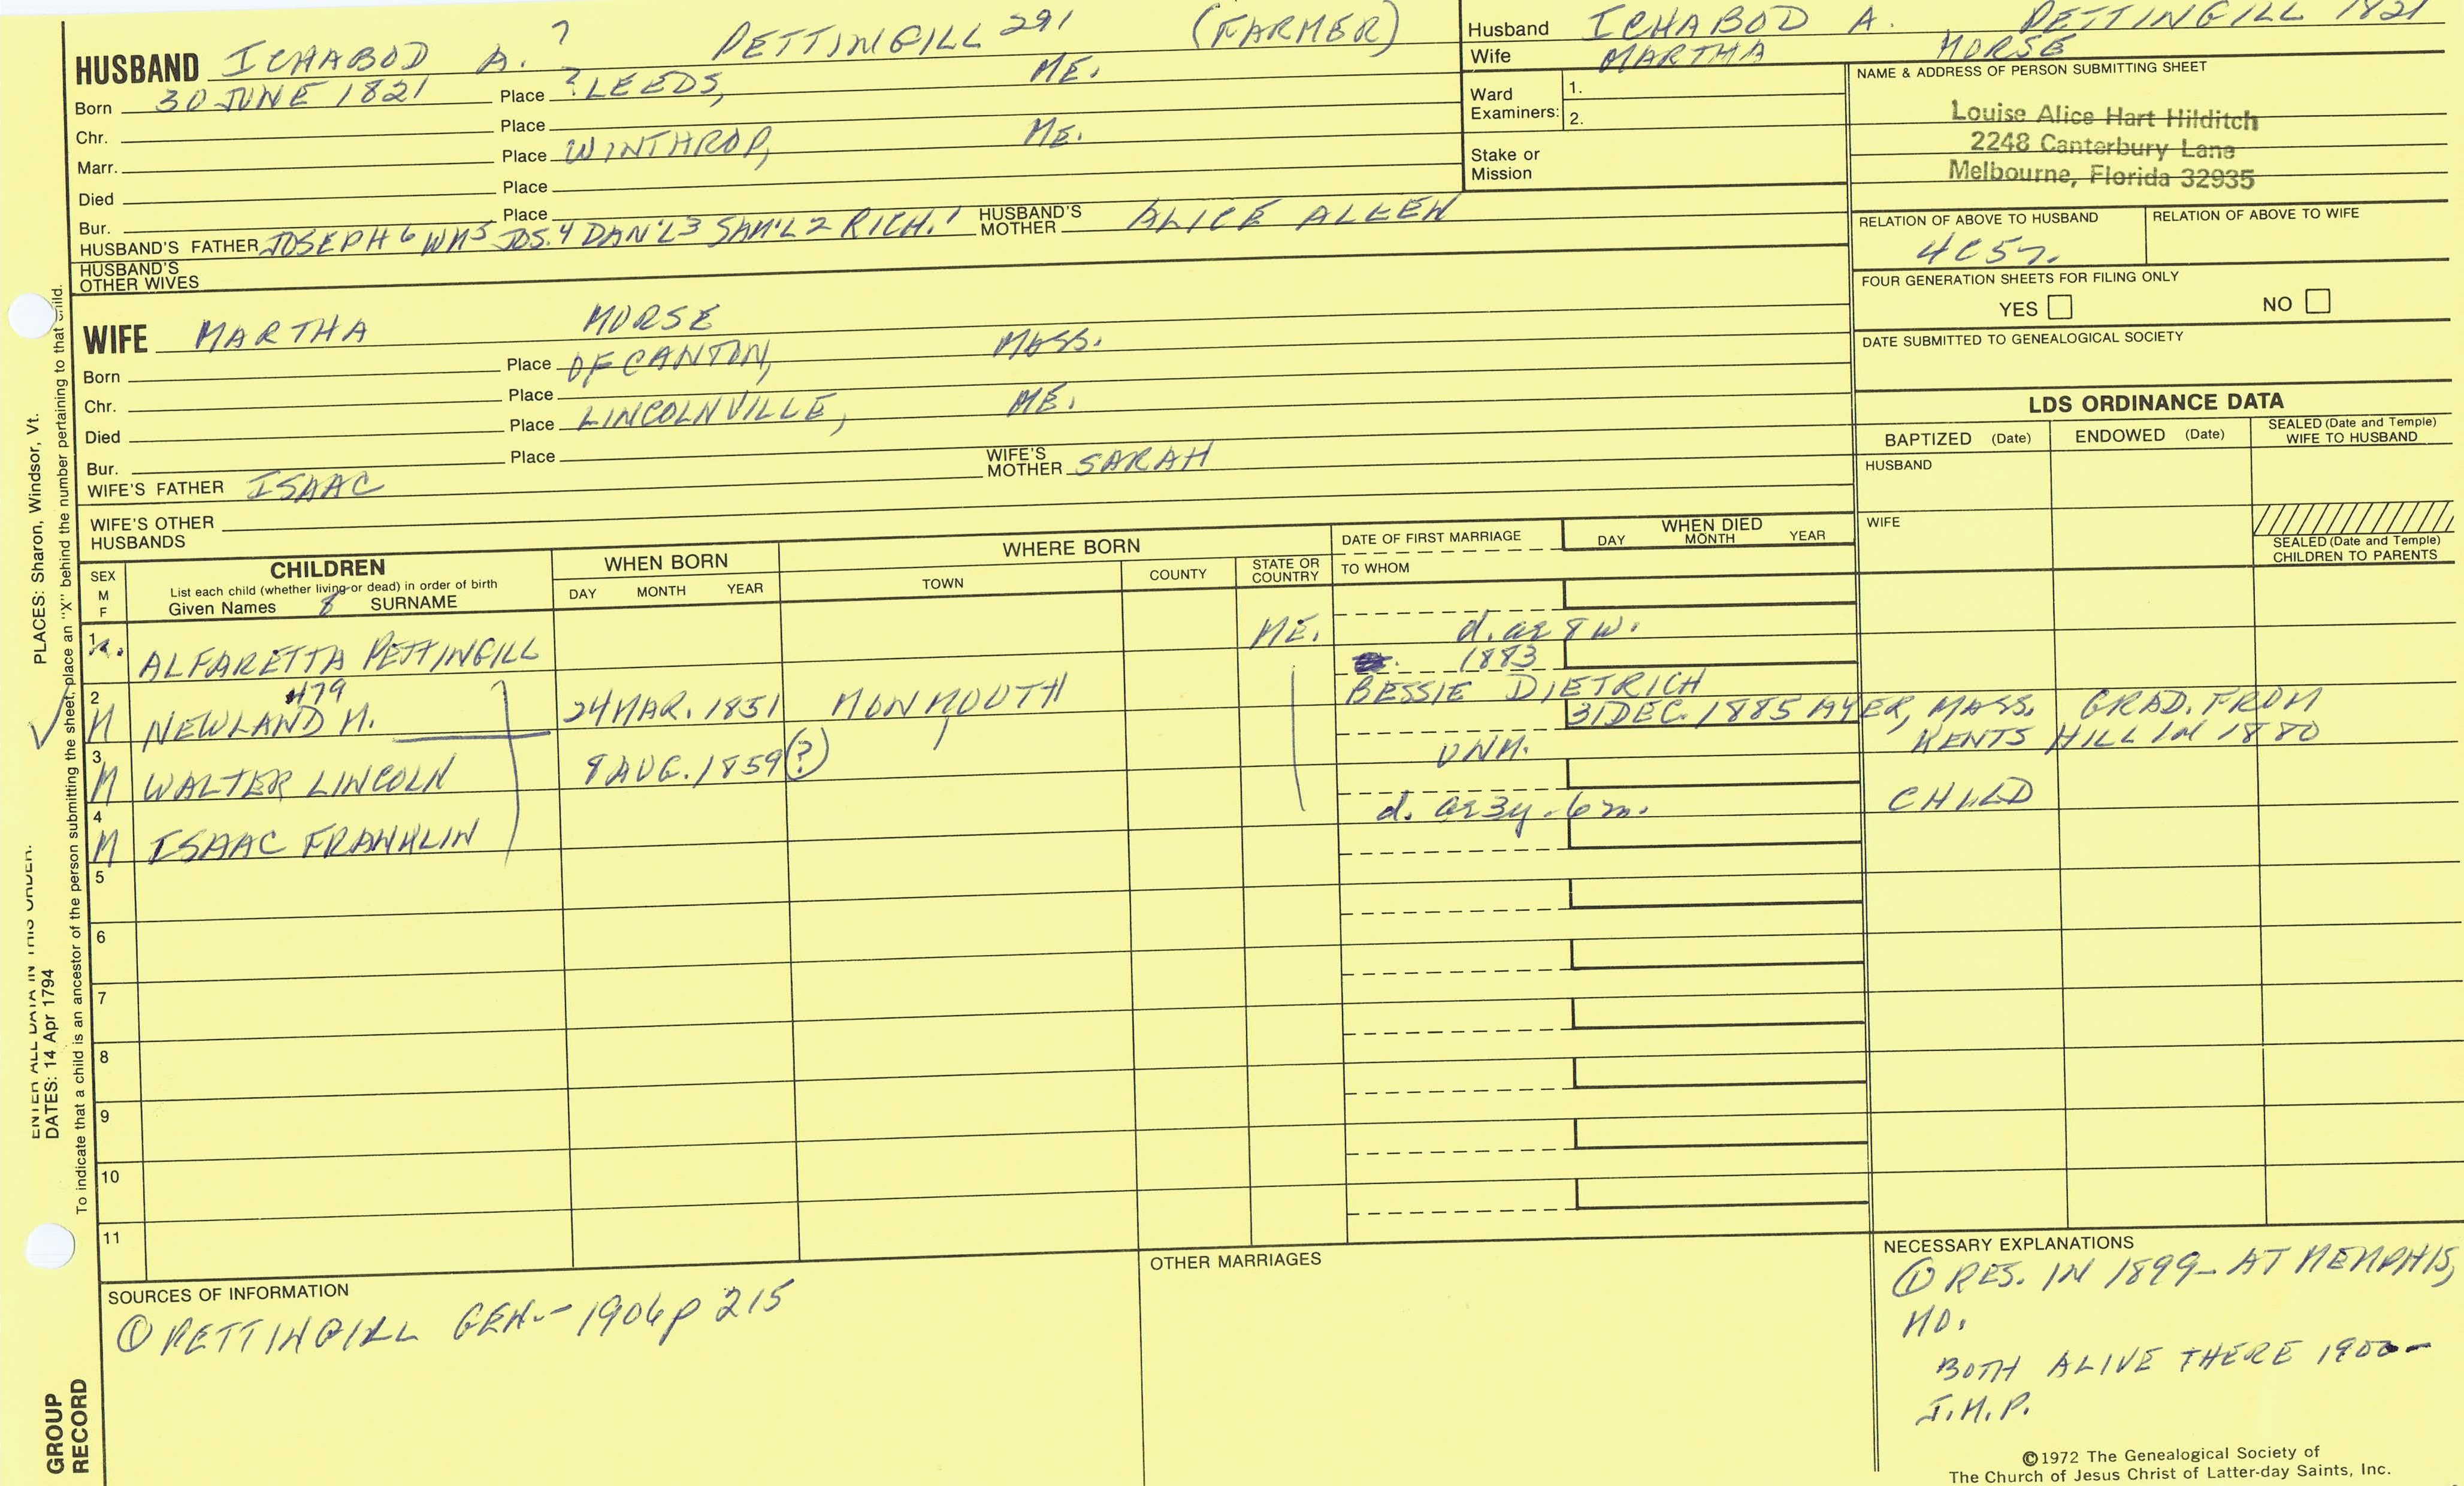 HUSBAND ICHABOD A. ? PETTINGILL 291 (FARMER)
Born 30 JUNE 1821 Place ? LEEDS, ME.
Chr. Place
Marr. Place WINTHROP, ME.
Died Place
Bur. Place
HUSBAND'S FATHER JOSEPH 6 WM5 JOS.4 DAN'L3 SAM'L 2 RICH.1 HUSBAND'S MOTHER ALICE ALLEN
HUSBAND'S OTHER WIVES
WIFE MARTHA MORSE
Born Place OF CANTON, MASS.
Chr. Place
Died Place LINCOLNVILLE, ME.
Bur. Place
WIFE'S FATHER ISAAC WIFE'S MOTHER SARAH
WIFE'S OTHER HUSBANDS
Husband ICHABOD A. PETTINGILL 1821
Wife MARTHA MORSE
Ward Examiners: 1.
2.
Stake or Mission
NAME & ADDRESS OF PERSON SUBMITTING SHEET
Louise Alice Hart Hilditch
2248 Canterbury Lane
Melbourne, Florida 32935
RELATION OF ABOVE TO HUSBAND RELATION OF ABOVE TO WIFE
FOUR GENERATION SHEETS FOR FILING ONLY
YES NO
DATE SUBMITTED TO GENEALOGICAL SOCIETY
LDS ORDINANCE DATA
BAPTIZED (Date) ENDOWED (Date) SEALED (Date and Temple) WIFE TO HUSBAND
HUSBAND
WIFE
SEALED (Date and Temple) CHILDREN TO PARENTS
SEX M F
CHILDREN
List each child (whether living or dead) in order of birth
Given Names SURNAME
WHEN BORN
DAY MONTH YEAR
WHERE BORN
TOWN COUNTY STATE OR COUNTRY
DATE OF FIRST MARRIAGE
TO WHOM
WHEN DIED
DAY MONTH YEAR
1 ALFARETTA PETTINGILL ME. d. ae 8 w.
1883
2 M NEWLAND M. 479 24 MAR. 1851 MONMOUTH BESSIE DIETRICH
31 DEC. 1885 AYER, MASS. GRAD. FROM
KENTS HILL IN 1880
3 M WALTER LINCOLN 8 AUG. 1859 (?) UNM.
4 M ISAAC FRANKLIN d. ae 3y - 6 m. CHILD
5
6
7
8
9
10
11
SOURCES OF INFORMATION
① PETTINGILL GEN. - 1906 p 215
OTHER MARRIAGES
NECESSARY EXPLANATIONS
① RES. IN 1899 - AT MEMPHIS,
MO.
BOTH ALIVE THERE 1900 -
J.M.P.
©1972 The Genealogical Society of
The Church of Jesus Christ of Latter-day Saints, Inc.
PLACES: Sharon, Windsor, Vt.
ENTER ALL DATA IN THIS ORDER:
DATES: 14 Apr 1794
To indicate that a child is an ancestor of the person submitting the sheet, place an "X" behind the number pertaining to that child.
GROUP
RECORD